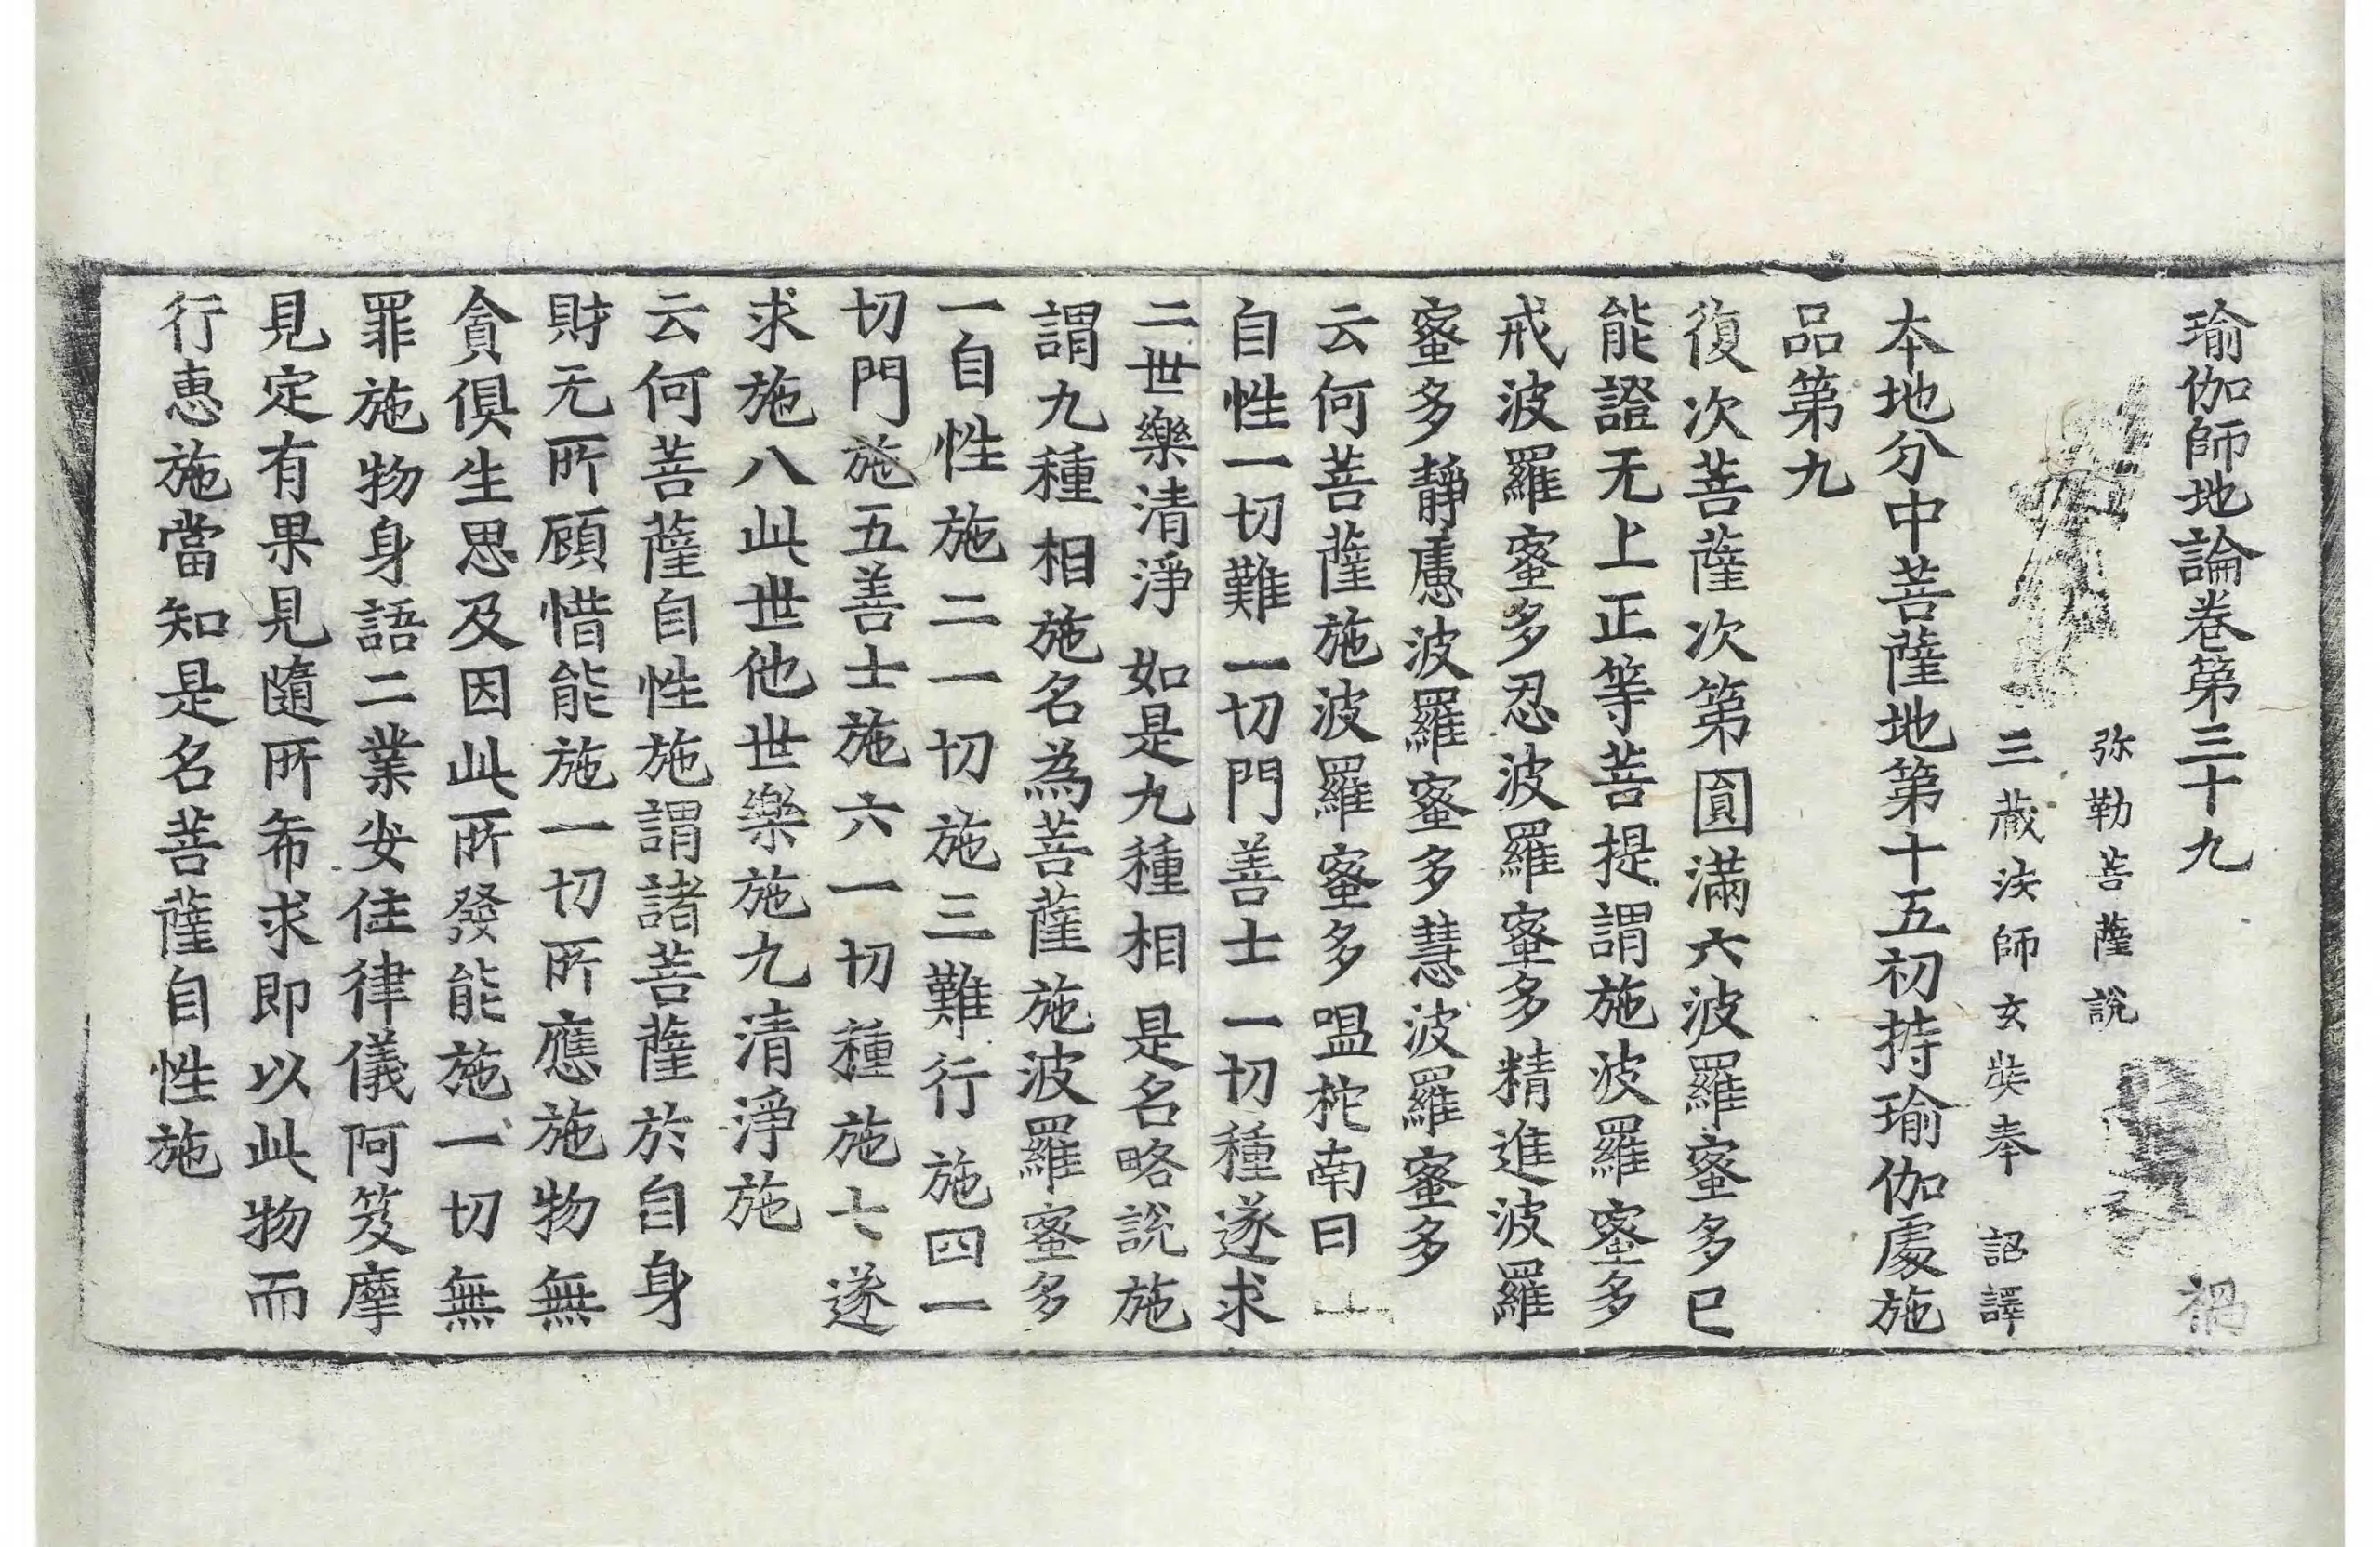 瑜伽師地論卷第三十九 禍
弥勒菩薩說
三藏法師玄奘奉 詔譯
本地分中菩薩地第十五初持瑜伽處施
品第九
復次菩薩次第圓滿六波羅蜜多已
能證无上正等菩提謂施波羅蜜多
戒波羅蜜多忍波羅蜜多精進波羅
蜜多靜慮波羅蜜多慧波羅蜜多
云何菩薩施波羅蜜多嗢柁南曰
自性一切難 一切門善士 一切種遂求
二世樂清淨 如是九種相 是名略說施
謂九種相施名為菩薩施波羅蜜多
一自性施二一切施三難行施四一
切門施五善士施六一切種施七遂
求施八此世他世樂施九清淨施
云何菩薩自性施謂諸菩薩於自身
財无所顧惜能施一切所應施物無
貪俱生思及因此所發能施一切無
罪施物身語二業安住律儀阿笈摩
見定有果見隨所希求即以此物而
行惠施當知是名菩薩自性施